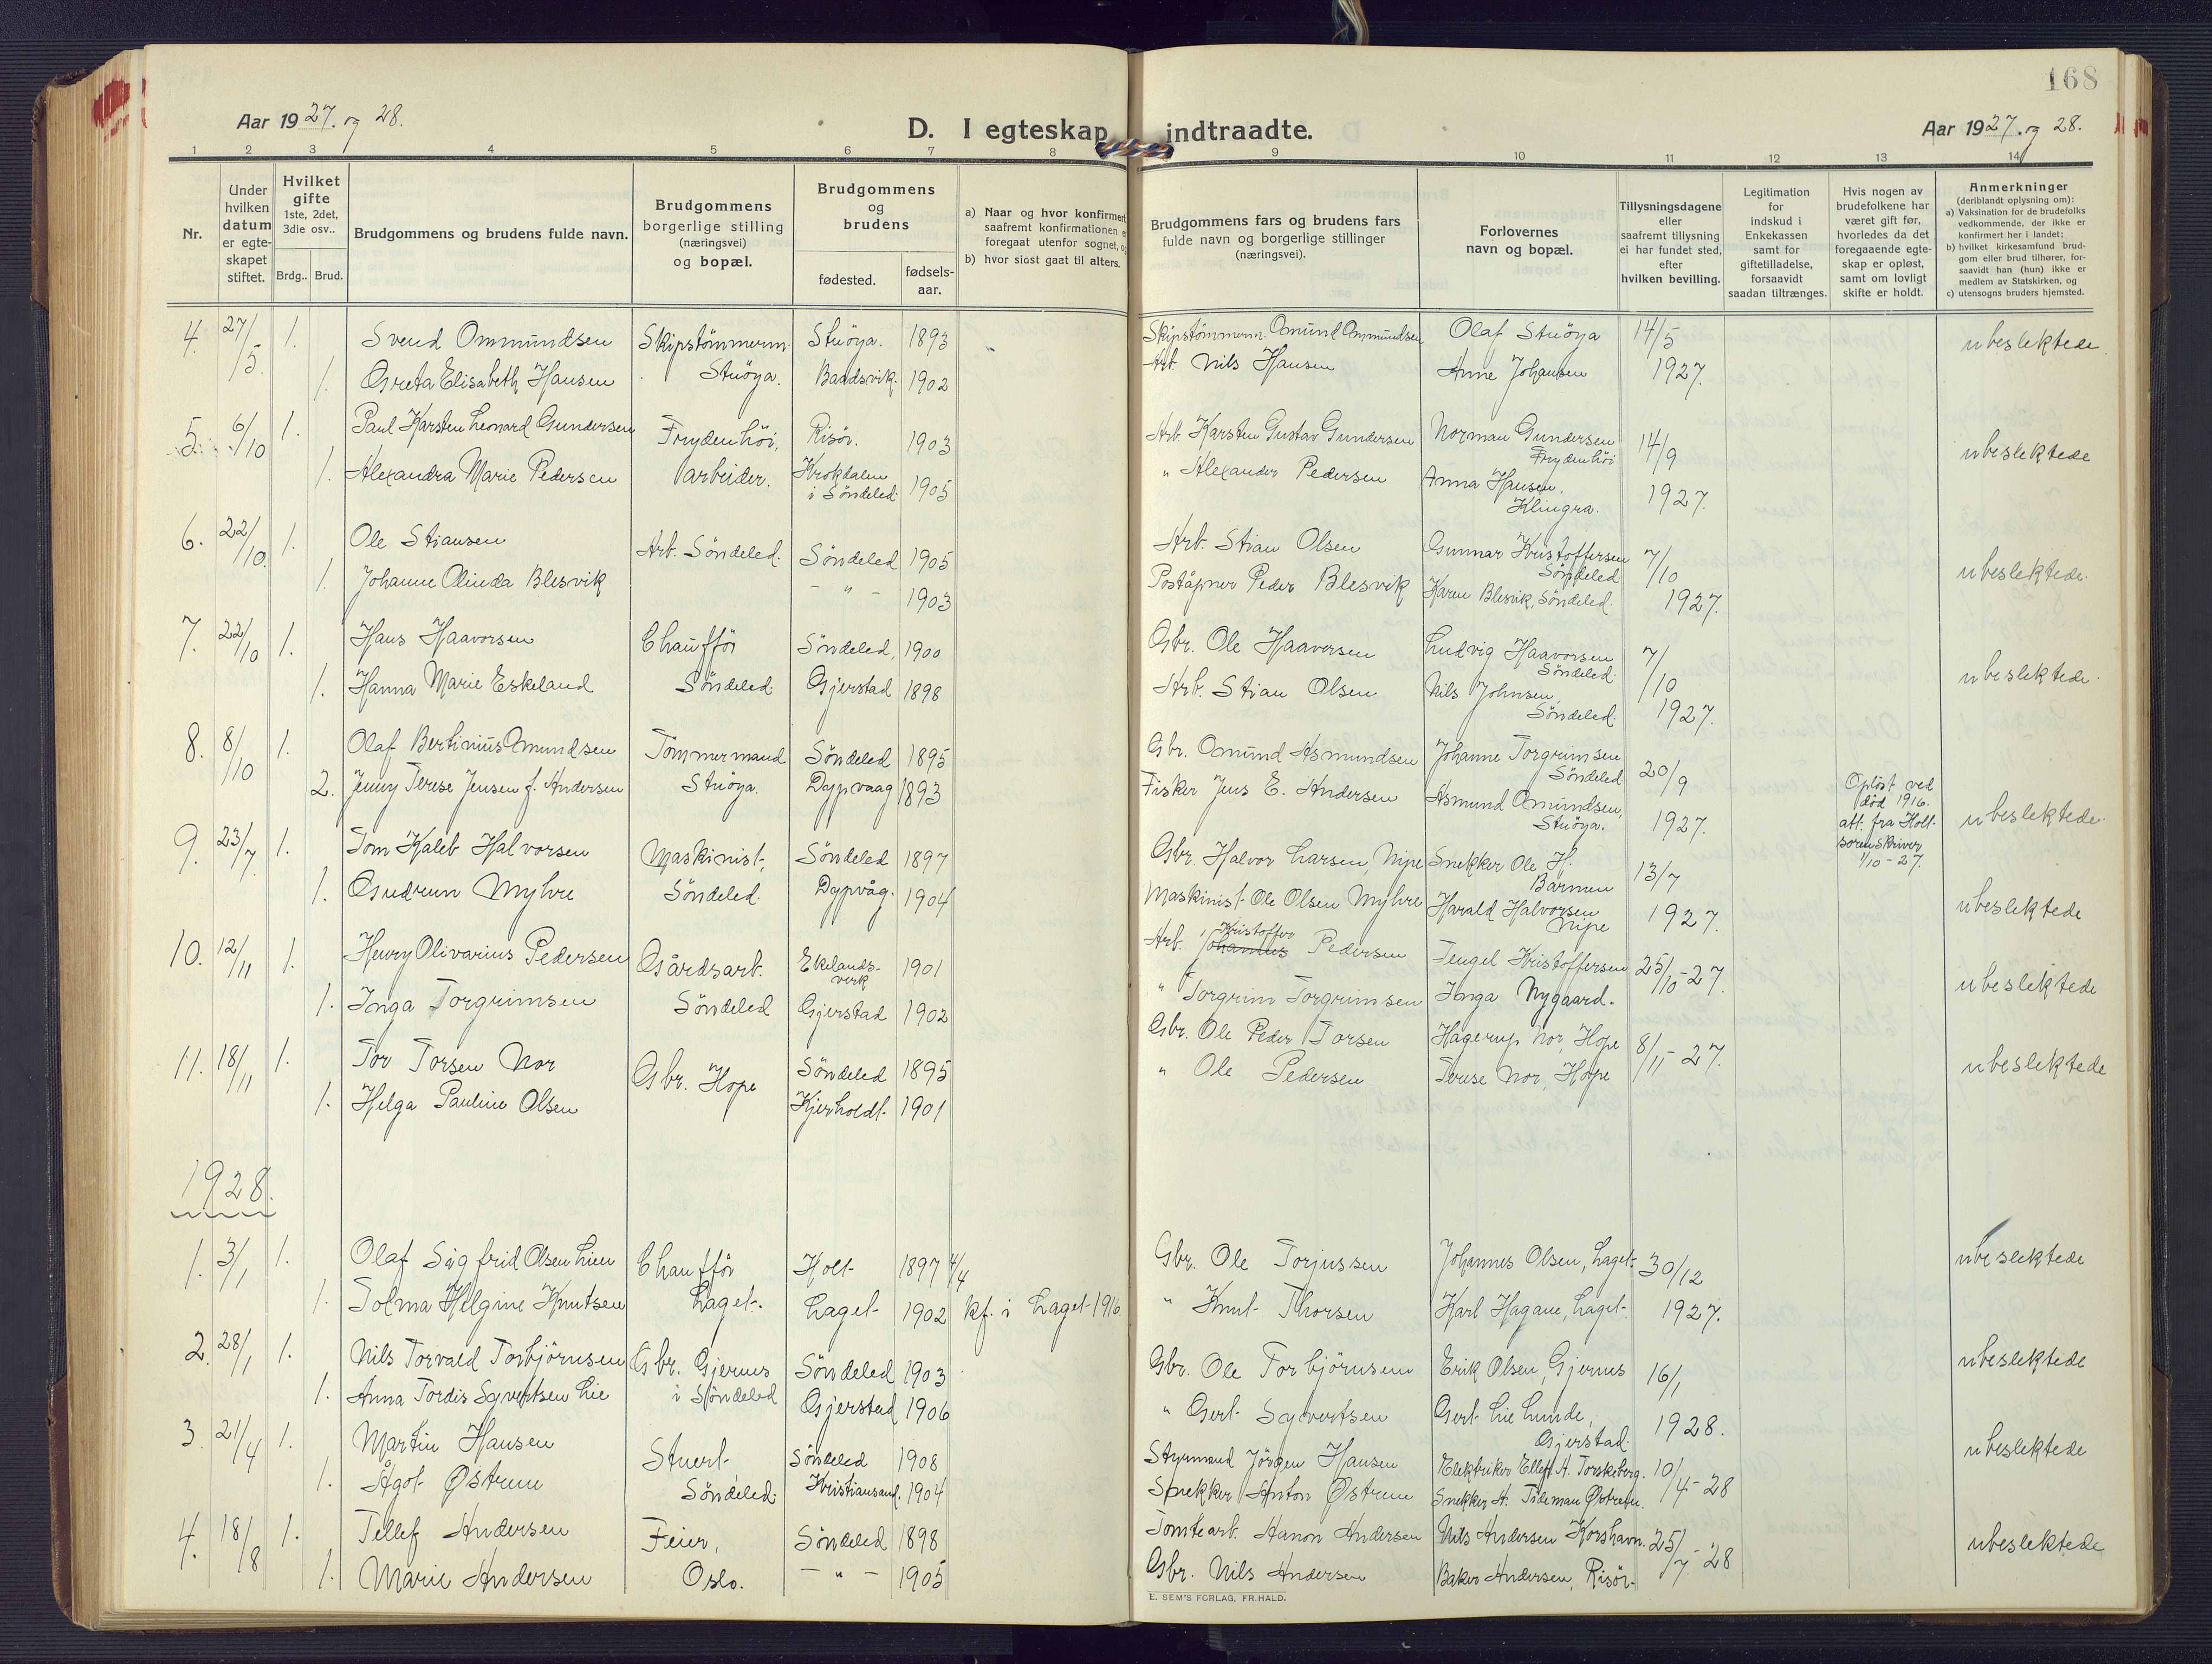 168
Aar 1927. og 28.
D. I egteskap indtraadte.
Aar 1927. og 28.
1 2 3 4 5 6 7 8 9 10 11 12 13 14
Nr.
Under hvilken datum er egte-skapet stiftet.
Hvilket gifte
1ste, 2det, 3die osv..
Brdg.. Brud.
Brudgommens og brudens fulde navn.
Brudgommens borgerlige stilling (næringsvei) og bopæl.
Brudgommens og brudens
fødested. fødsels-aar.
a) Naar og hvor konfirmert
saafremt konfirmationen e
foregaat utenfor sognet, og
b) hvor sidst gaat til alters.
Brudgommens fars og brudens fars
fulde navn og borgerlige stillinger
(næringsvei).
Forlovernes
navn og bopæl.
Tillysningsdagene
eller
saafremt tillysning
ei har fundet sted,
efter
hvilken bevilling.
Legitimation
for
indskud i
Enkekassen
samt for
giftetilladelse,
forsaavidt
saadan tiltrænges.
Hvis nogen av
brudefolkene har
været gift før,
hvorledes da det
foregaaende egte-
skap er opløst,
samt om lovligt
skifte er holdt.
Anmerkninger
(deriblandt oplysning om):
a) Vaksination for de brudefolks
vedkommende, der ikke er
konfirmert her i landet;
b) hvilket kirkesamfund brud-
gom eller brud tilhører, for-
saavidt han (hun) ikke er
medlem av Statskirken, og
c) utensogns bruders hjemsted.
4. 27/5. 1. Svend Ommundsen Skipstömmerm. Stuöya. 1893 Skipstömmerm. Omund Ommundsen Olaf Stuöya 14/5 ubeslektede
1. Greta Elisabeth Hansen Stuöya. Baadsvik. 1902 Arb. Nils Hansen Anne Johansen 1927.
5. 6/10 1. Paul Karsten Leonard Gundersen Frydenhöi, Risör. 1903 Arb. Karsten Gustav Gundersen Norman Gundersen Frydenhöi 14/9 ubeslektede
1. Alexandra Marie Pedersen arbeider. Krokdalen i Söndeled. 1905 " Alexander Pedersen Anna Hansen, Klingra. 1927.
6. 22/10. 1. Ole Stiansen Arb. Söndeled. Söndeled 1905 Arb. Stian Olsen Gunnar Kristoffersen Söndeled 7/10 ubeslektede.
1. Johanne Olinda Blesvik - " - 1903 Poståpner Peder Blesvik Karen Blesvik, Söndeled. 1927.
7. 22/10 1. Hans Haavorsen Chaufför Söndeled, 1900 Gbr. Ole Haavorsen Ludvig Haavorsen Söndeled. 7/10 ubeslektede.
1. Hanna Marie Eskeland Söndeled Gjerstad 1898 Arb. Stian Olsen Nils Johnsen, Söndeled. 1927.
8. 8/10 1. Olaf Bertinius Omundsen Tömmermand Söndeled 1895 Gbr. Omund Asmundsen Johanne Torgrimsen Söndeled 20/9
2. Jenny Terese Jensen f. Andersen Stuöya. Dypvaag 1893 Fisker Jens E. Andersen Asmund Omundsen, Stuöya. 1927. Oplöst ved död 1916. att. fra Holt sorenskriver 1/10-27. ubeslektede.
9. 23/7. 1. Tom Kaleb Halvorsen Maskinist, Söndeled 1897 Gbr. Halvor Larsen, Nipe Snekker Ole H. Barmen 13/7
1. Gudrun Myhre Söndeled. Dypvåg. 1904 Maskinist Ole Olsen Myhre Harald Halvorsen Nipe 1927. ubeslektede
10. 12/11 1. Henry Olivarius Pedersen Gårdsarb. Ekelands-verk 1901 Arb. Kristoffer Johannes Pedersen Tengel Kristoffersen 25/10-27. ubeslektede
1. Inga Torgrimsen Söndeled Gjerstad 1902 " Torgrim Torgrimsen Inga Nygaard.
11. 18/11 1. Tor Torsen Nor Gbr. Hope Söndeled 1895 Gbr. Ole Peder Torsen Hagerup Nor, Hope 8/11-27. ubeslektede
1. Helga Pauline Olsen Kjerholdt 1901 " Ole Pedersen Terese Nor, Hope
1928.
1. 3/1 1. Olaf Sigfrid Olsen Lien Chaufför Holt 1897 4/4 Gbr. Ole Torjussen Johannes Olsen, Laget 30/12 ubeslektede
1. Solma Helgine Knutsen Laget. Laget 1902 kf. i Laget 1916 " Knut Thorsen Karl Hagane, Laget. 1927.
2. 28/1 1. Nils Torvald Torbjörnsen Gbr. Gjernes i Söndeled Söndeled 1903 Gbr. Ole Torbjörnsen Erik Olsen, Gjernes 16/1 ubeslektede
1. Anna Tordis Syvertsen Lie Gjerstad 1906 " Gert Syvertsen Gert Lie Lunde, Gjerstad. 1928.
3. 21/4 1. Martin Hansen Stuert Söndeled 1908 Styrmand Jörgen Hansen Elektriker Ellef A. Torskeberg. 10/4-28 ubeslektede
1. Ågot Østrem Söndeled. Kristiansand. 1904 Snekker Anton Østrem Snekker A. Tideman Østrem.
4. 18/8 1. Tellef Andersen Feier, Söndeled 1898 Tomtearb. Hanon Andersen Nils Andersen Korshavn. 25/7-28 ubeslektede
1. Marie Andersen Oslo. - " - 1905 Gbr. Nils Andersen Baker Andersen, Risör.
E. SEM'S FORLAG, FR.HALD.